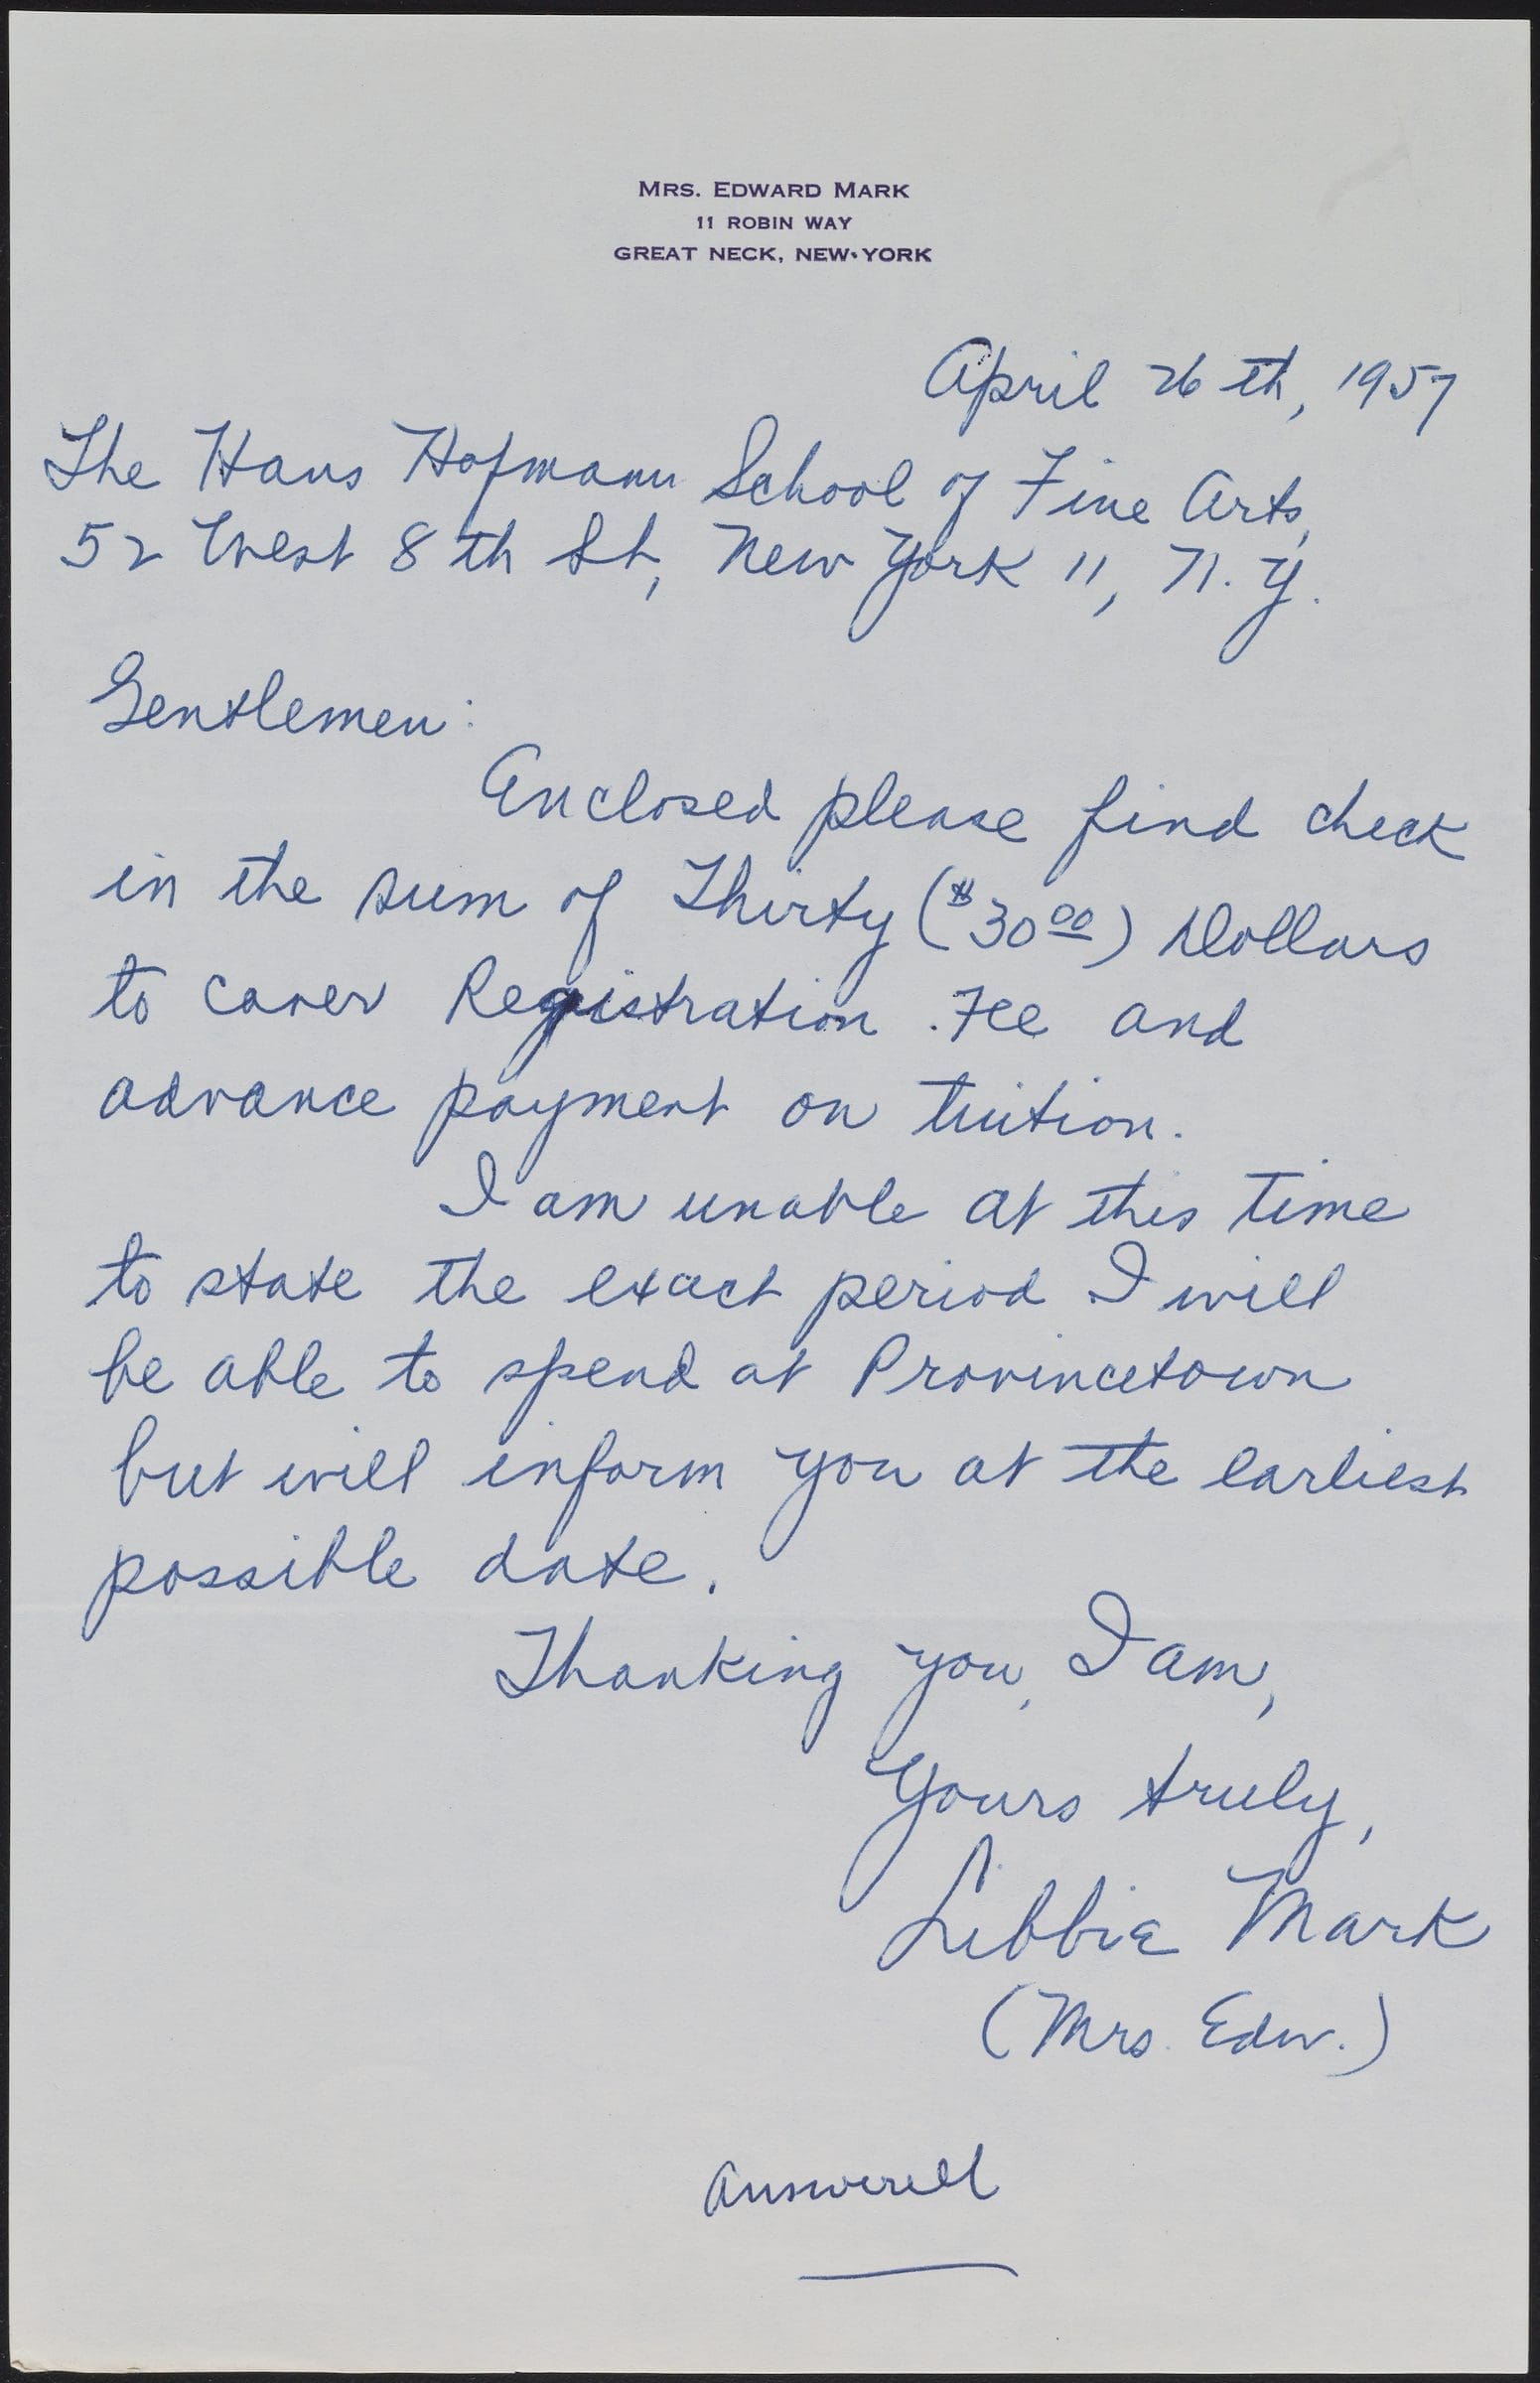 MRS. EDWARD MARK
11 ROBIN WAY
GREAT NECK, NEW YORK
April 26th, 1957
The Hans Hofmann School of Fine Arts,
52 West 8th St, New York 11, N.Y.
Gentlemen:
Enclosed please find check
in the sum of Thirty ($30.00) Dollars
to cover Registration Fee and
advance payment on tuition.
I am unable at this time
to state the exact period I will
be able to spend at Provincetown
but will inform you at the earliest
possible date.
Thanking you, I am,
Yours truly,
Libbie Mark
(Mrs. Edw.)
answered